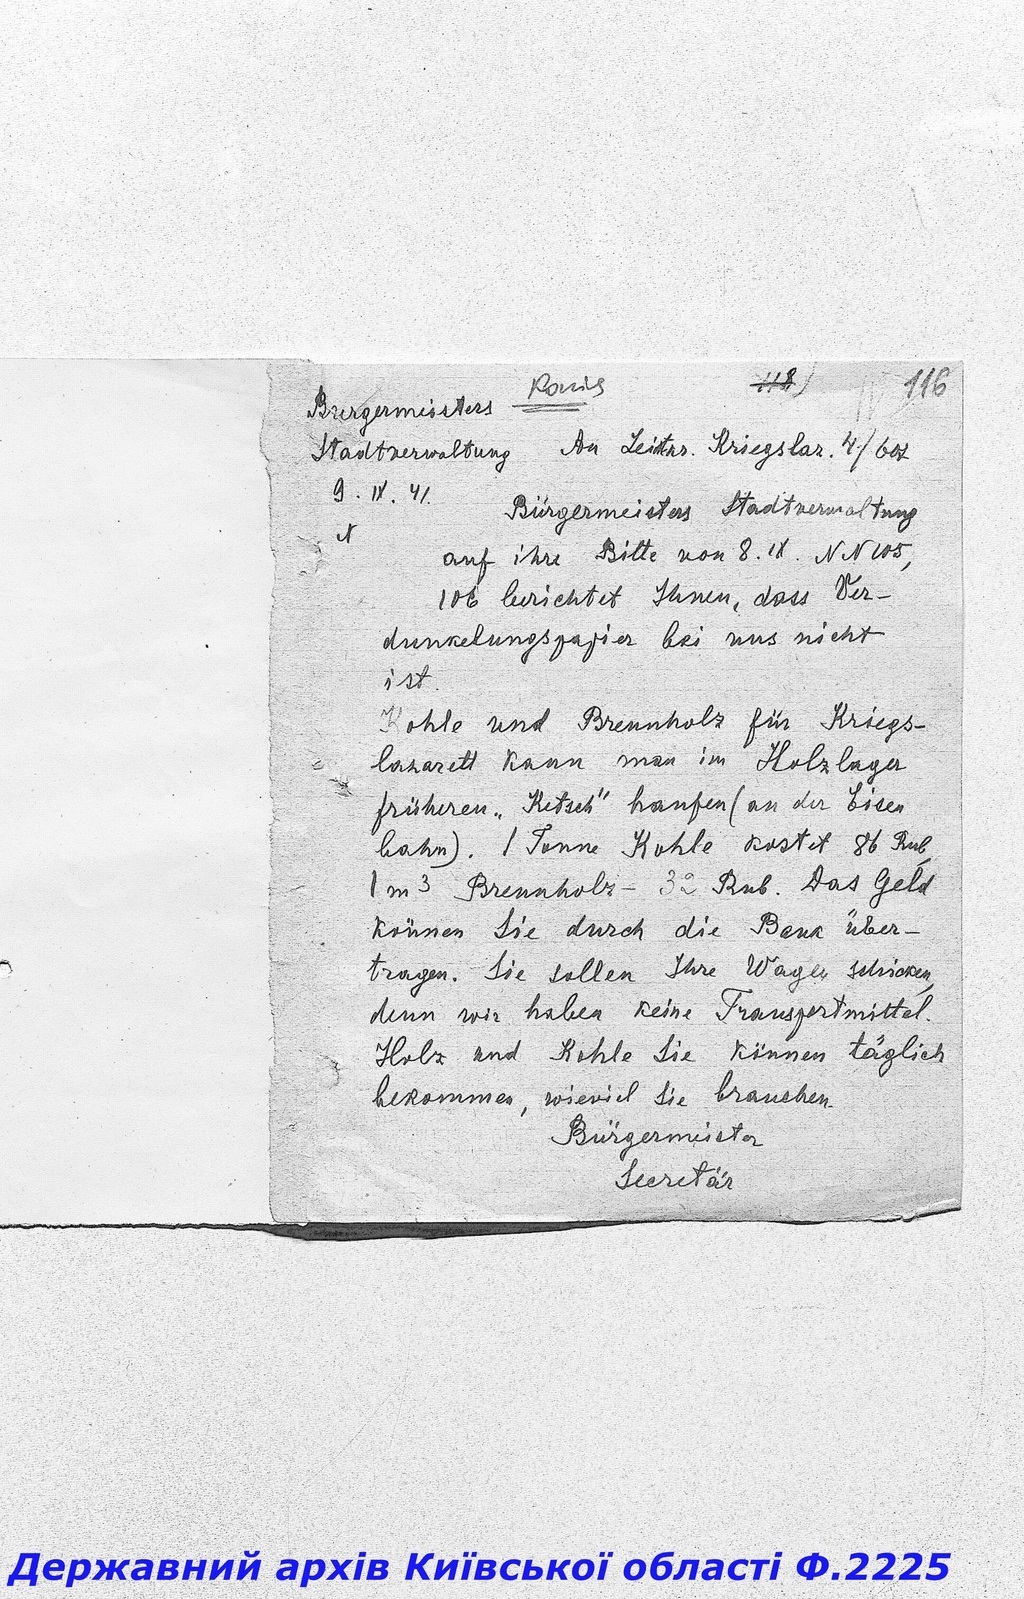 Копія
118
116
Bürgermeisters
Stadtverwaltung An Leiter. Kriegslaz. 4/602
9. IX. 41.
N
Bürgermeisters Stadtverwaltung
auf ihre Bitte von 8. IX. NN 105,
106 berichtet Ihnen, dass Ver-
dunkelungspapier bei uns nicht
ist.
Kohle und Brennholz für Kriegs-
lazarett kann man im Holzlager
früheren „Ketsch" kaufen (an der Eisen
bahn). 1 Tonne Kohle kostet 86 Rub,
1 m3 Brennholz – 32 Rub. Das Geld
können Sie durch die Bank über-
tragen. Sie sollen Ihre Wagen schicken,
denn wir haben keine Transportmittel.
Holz und Kohle Sie können täglich
bekommen, wieviel Sie brauchen.
Bürgermeister
Secretär
Державний архів Київської області Ф.2225